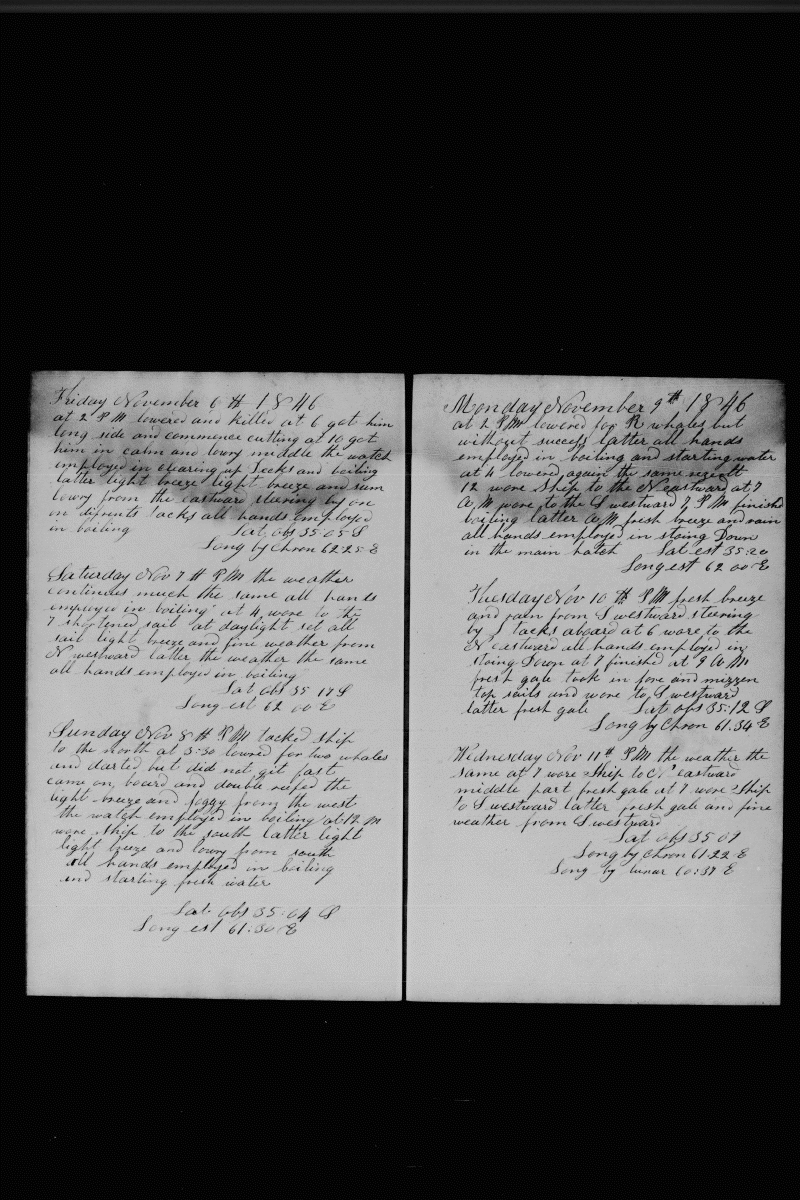 Friday November 6 th 1846
at 2 P M lowered and killed at 6 got him
long side and commence cutting at 10 got
him in calm and lowry middle the watch
employed in clearing up Decks and boiling
latter light breeze light breeze and
lowry from the eastward steering by on
on difrents tacks all hands employed
in boiling Lat obs 35-05 S
Long by Chron 62-25 E
Saturday Nov 7 th P M the weather
continues much the same all hands
employed in boiling at 4 wore to the
7 shortened sail at daylight set all
sail light breeze and fine weather from
N westward latter the weather the same
all hands employed in boiling
Lat obs 35 17 S
Long est 62 00 E
Sunday Nov 8 th P M tacked ship
to the north at 3-30 lowred for two whales
and darted but did not git fast
came on board and double reefed the
light breeze and foggy from the west
the watch employed in boiling at 12 M
wore ship to the south latter light
light breeze and lowry from south
all hands employed in boiling
and starting fresh water
Lat obs 35-04 S
Long est 61-30 E
Monday November 9th 1846
at 2 P M lowered for R whales but
without success latter all hands
employed in boiling and starting water
at 4 lowered again the same
12 wore ship to the N eastward at 7
A M wore to the S westward 7 P M finished
boiling latter A M fresh breeze and rain
all hands employed in stoing Down
in the main hatch Lat est 35-20
Long est 62 00 E
Tuesday Nov 10 th P M fresh breeze
and rain from S westward steering
by S tacks aboard at 6 wore to the
N eastward all hands employed in
stoing Down at 7 finished at 9 A M
fresh gale took in fore and mizzen
top sails and wore to S westward
latter fresh gale Lat obs 35-12 S
Long by Chron 61-34 E
Wednesday Nov 11th P M the weather the
same at 7 wore Ship to N eastward
middle part fresh gale at 7 wore Ship
to S westward latter fresh gale and fine
weather from S westward
Lat obs 35 07
Long by Chron 61-22 E
Long by lunar 60-37 E